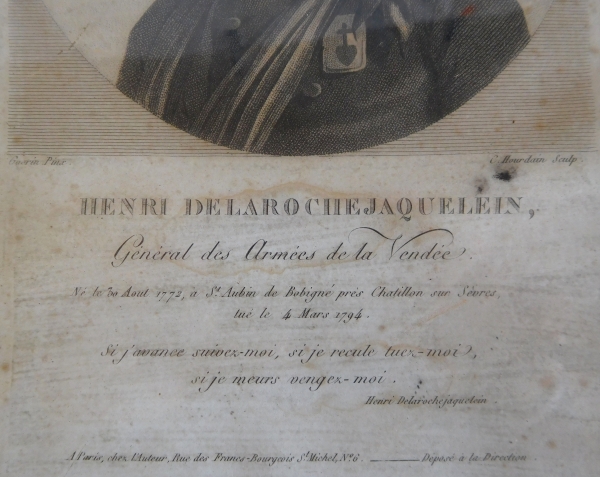 Guerin Pinx.
C. Bourdain Sculp.
HENRI DELAROCHEJAQUELEIN,
Général des Armées de la Vendée.
Né le 30 Aout 1772, à St. Aubin de Bobigné près Chatillon sur Sèvres,
tué le 4 Mars 1794.
Si j'avance suivez-moi, si je recule tuez-moi,
si je meurs vengez-moi.
Henri Delarochejaquelein
A Paris, chez l'Auteur, Rue des Francs-Bourgeois St. Michel, No. 6. Déposé à la Direction.